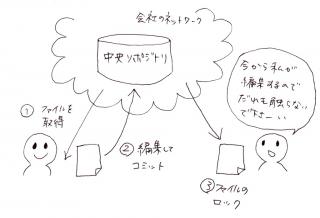 会社のネットワーク
中央リポジトリ
① ファイルを
取得
② 編集して
コミット
③ ファイルの
ロック
今から私が
編集するので
だれも触らない
で下さーい